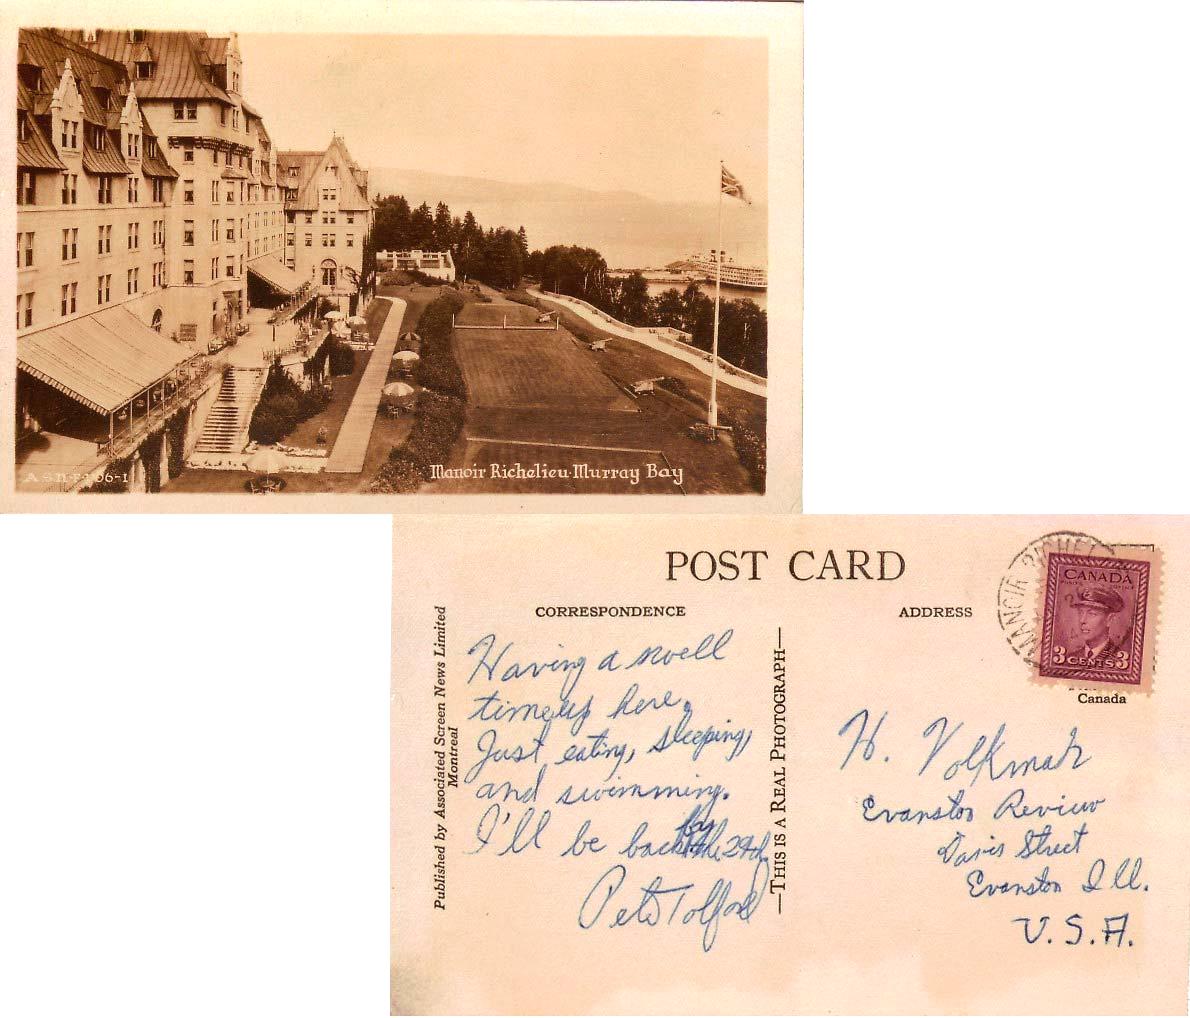 A S N-F-106-1
Manoir Richelieu-Murray Bay
POST CARD
CORRESPONDENCE
ADDRESS
Published by Associated Screen News Limited
Montreal
—THIS IS A REAL PHOTOGRAPH—
MANOIR RICHEL
CANADA
3 CENTS 3
Canada
Having a swell
time up here.
Just eating, sleeping,
and swimming.
I'll be back by
the 29th.
Pete Tolford
H. Volkmar
Evanston Review
Davis Street
Evanston Ill.
U.S.A.